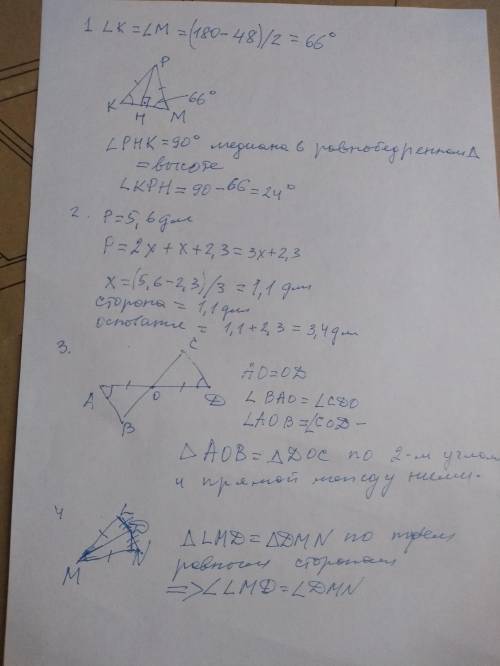 1. ∠K = ∠M = (180 - 48)/2 = 66°
P
66°
K
H
M
∠PHK = 90° медиана в равнобедренном Δ
= высоте
∠KPH = 90 - 66 = 24°
2. P = 5,6 дм
P = 2x + x + 2,3 = 3x + 2,3
x = (5,6 - 2,3)/3 = 1,1 дм
сторона = 1,1 дм
основание = 1,1 + 2,3 = 3,4 дм
3.
C
A
O
D
B
AO = OD
∠BAO = ∠CDO
∠AOB = ∠COD -
ΔAOB = ΔDOC по 2-м углам
и прямой между ними.
4
L
D
M
N
ΔLMD = ΔDMN по трём
равным сторонам
=> ∠LMD = ∠DMN